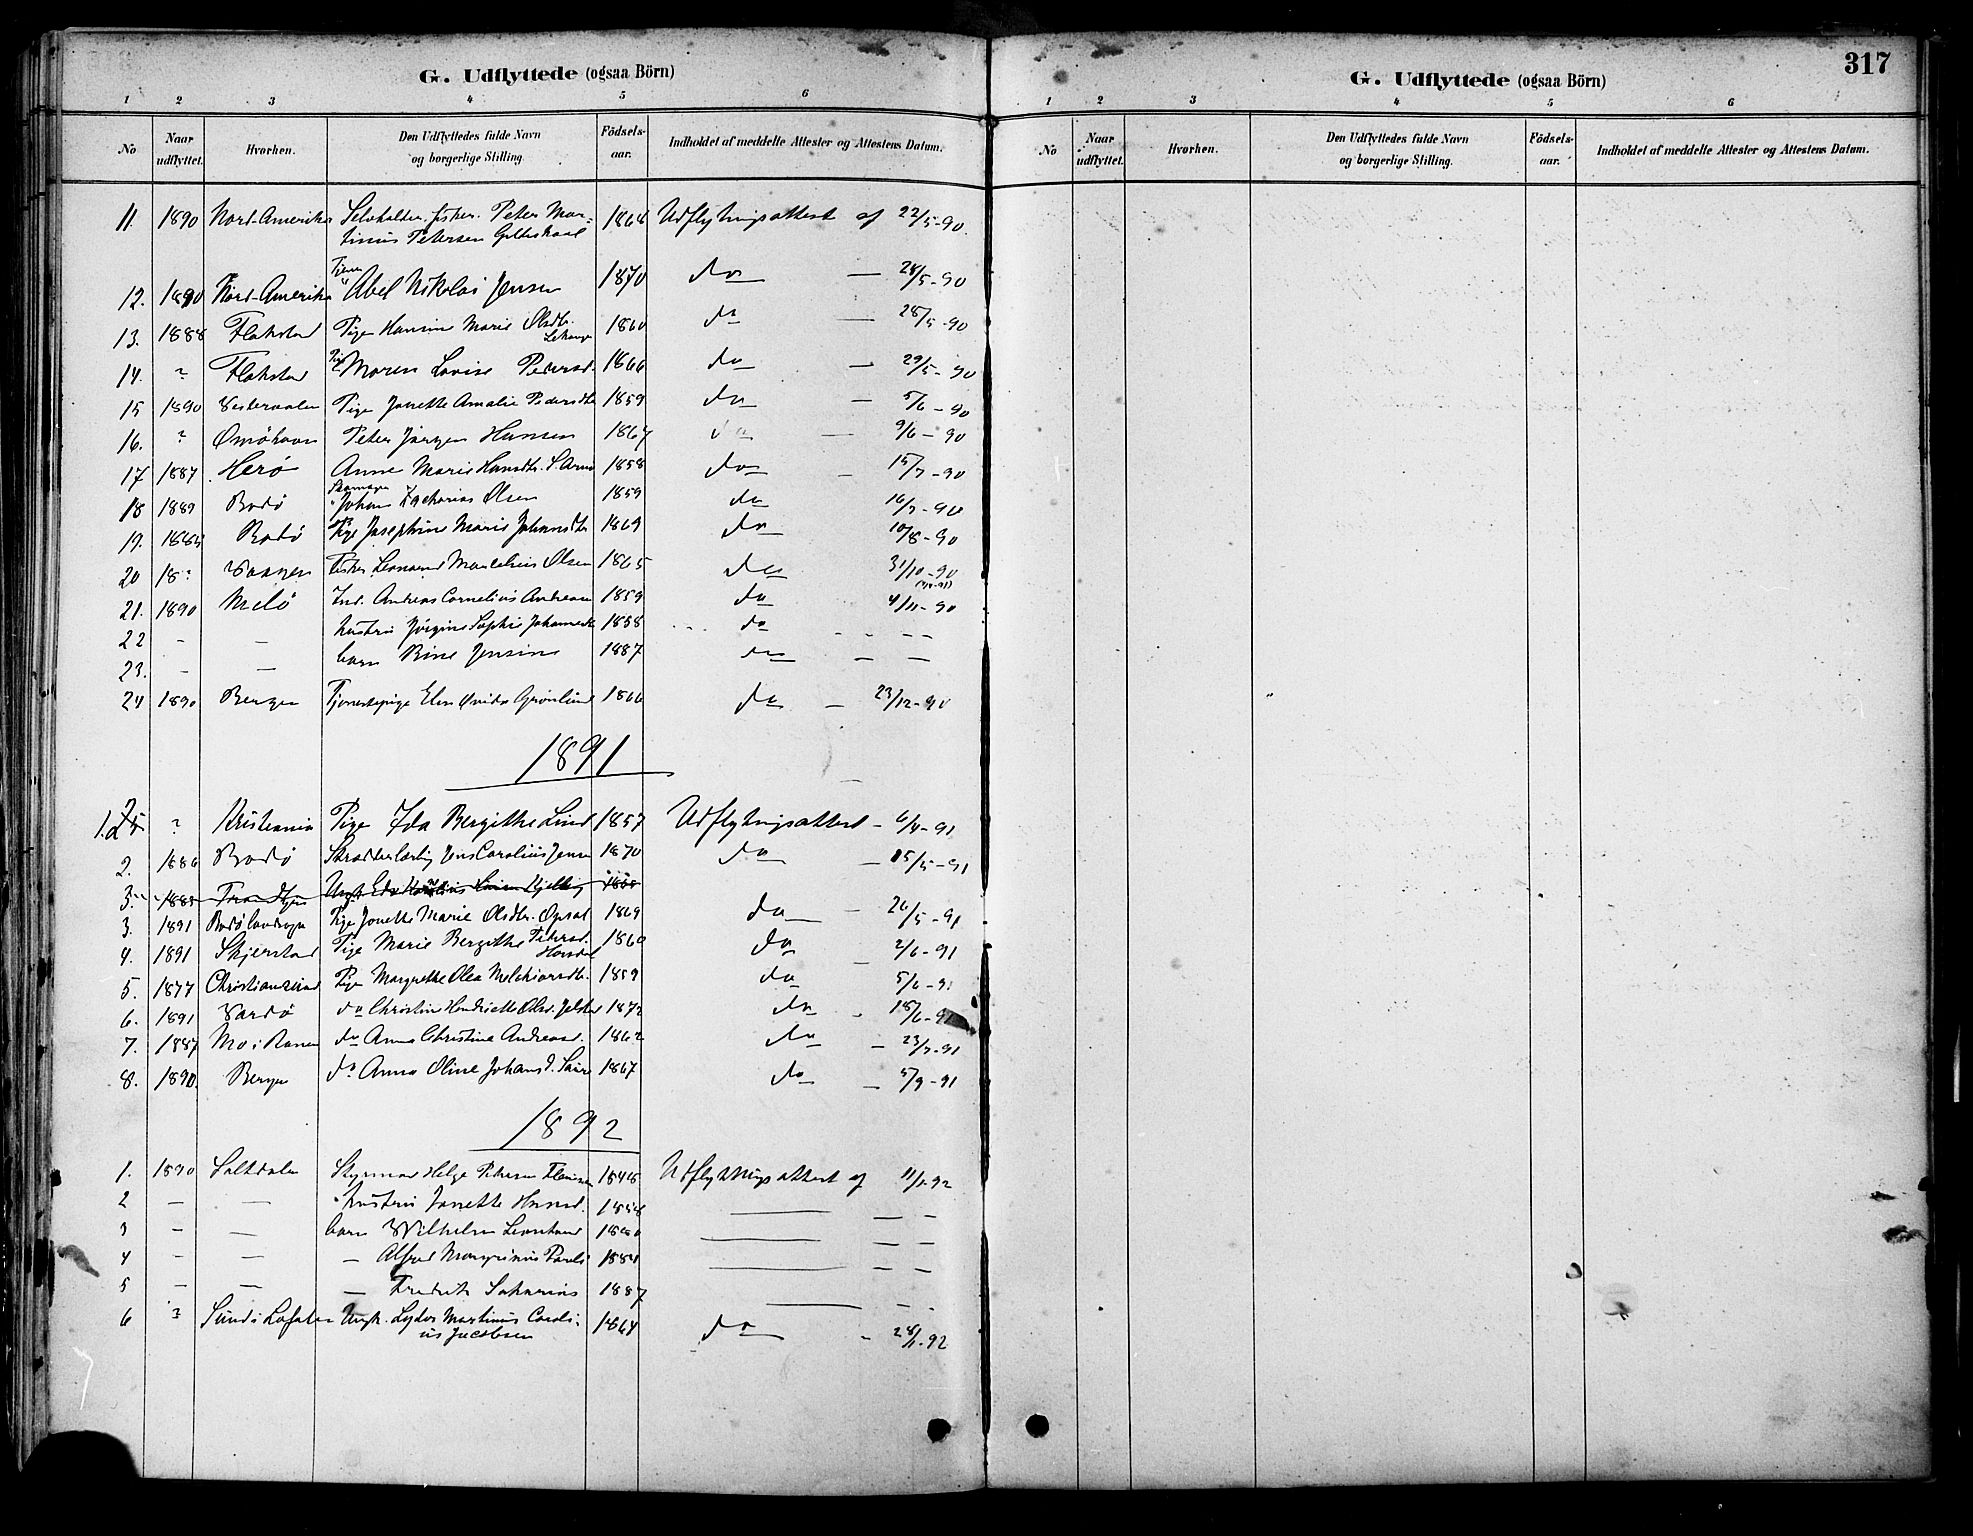 G. Udflyttede (ogsaa Börn)
1 2 3 4 5 6
No Naar udflyttet. Hvorhen. Den Udflyttedes fulde Navn og borgerlige Stilling. Födsels-aar. Indholdet af meddelte Attester og Attestens Datum.
11. 1890 Nord-Amerika Selvholder, fisker. Peter Mar-
tinus Petersen Gildeskaal 1864 Udflytningsattest af 22/5-90.
12. 1890 Nord-Amerika Abel Nikolai Jensen 1870 do — 28/5-90
13. 1888 Flakstad Pige Hansine Marie Olsdtr. 1860 do — 28/5-90
14. ? Flakstad Pige Maren Lovise Pedersd. 1866 do — 29/5-90
15 1890 Vesteraalen Pige Jonette Amalie Pedersdtr 1859 do — 5/6-90
16. ? Peter Jørgen Hansen 1867 do — 9/6-90
17 1887 Herø Anne Marie Hansdtr. 1858 do — 15/7-90
18 1889 Bodø Johan Zacharias Olsen 1859 do 16/7-90
19. Bodø Pige Josephine Marie Johansdtr 1869 do 10/8-90
20 18? Vaagen Fisker Leonard Olsen 1865 do 31/10-90
21. 1890 Melø Ind. Andreas Cornelius Andreasen 1859 do 4/11-90
22 — — hustru Jørgine Sophie 1858 do — — —
23. — — barn Rine Jensine 1887 do — —
24 1890 Bergen Tjenestepige Elen Grønlund 1866 do — 23/12-90
1891
1. ? Kristiania Pige Ida Bergithe Lind 1857 Udflytningsattest - 6/4-91
2. 1886 Bodø Jens Carolius Jensen 1870 do — 15/5-91
3.
3. 1891 Bodø landsogn Pige Jonette Marie Olsdtr. Opsal 1869 do — 26/5-91
4. 1891 Skjerstad Pige Marie Bergithe Petersd. 1860 do 2/6-91
5. 1877 Christiansund Pige Margrethe Olea Melchiorsdtr. 1859 do 5/6-91
6. 1891 Vardø do Christine Hendriette 1872 do - 18/6-91
7. 1887 Mo i Ranen do Anna Christine Andreasd. 1862 do — 23/7-91
8. 1890. Bergen do Anna Oline Johansd. 1867 do — 5/9-91
1892
1. 1890 Saltdalen Styrmand Helge Petersen 1848 Udflytningsattest af 11/1-92
2 — — hustru Jonette Hansd. — — —
3 — — barn Vilhelm Leonhard — — —
4 — — — Alfred Margrinius — — —
5 — — — Fredrik Sakarias 1887 — — -
6 ? Sund i Lofoten Ungk. Lyder Martinus Caroli-
us Jacobsen 1864 do - 28/1-92
317
G. Udflyttede (ogsaa Börn)
1 2 3 4 5 6
No Naar udflyttet. Hvorhen. Den Udflyttedes fulde Navn og borgerlige Stilling. Födsels-aar. Indholdet af meddelte Attester og Attestens Datum.